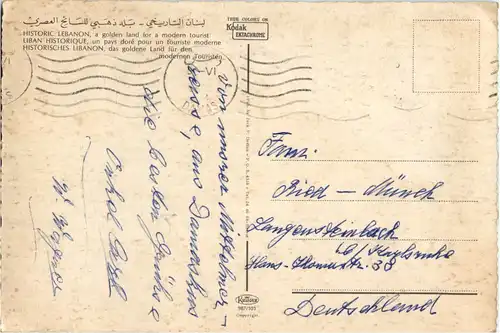 لبنان التاريخي - بلد ذهبي للسائح العصري
HISTORIC LEBANON, a golden land for a modern tourist
LIBAN HISTORIQUE, un pays doré pour un touriste moderne
HISTORISCHES LIBANON, das goldene Land für den
modernen Touristen
TRUE COLORS ON
Kodak
EKTACHROME
VI
Von unsrer Mittelmeer-
reise, aus Damaskus
die besten Grüße
Onkel
Fam.
Ried - Münch
Langensteinbach
b/ Karlsruhe
Hans-Thomastr. 33
Deutschland
Kruger
987/101
Copyright